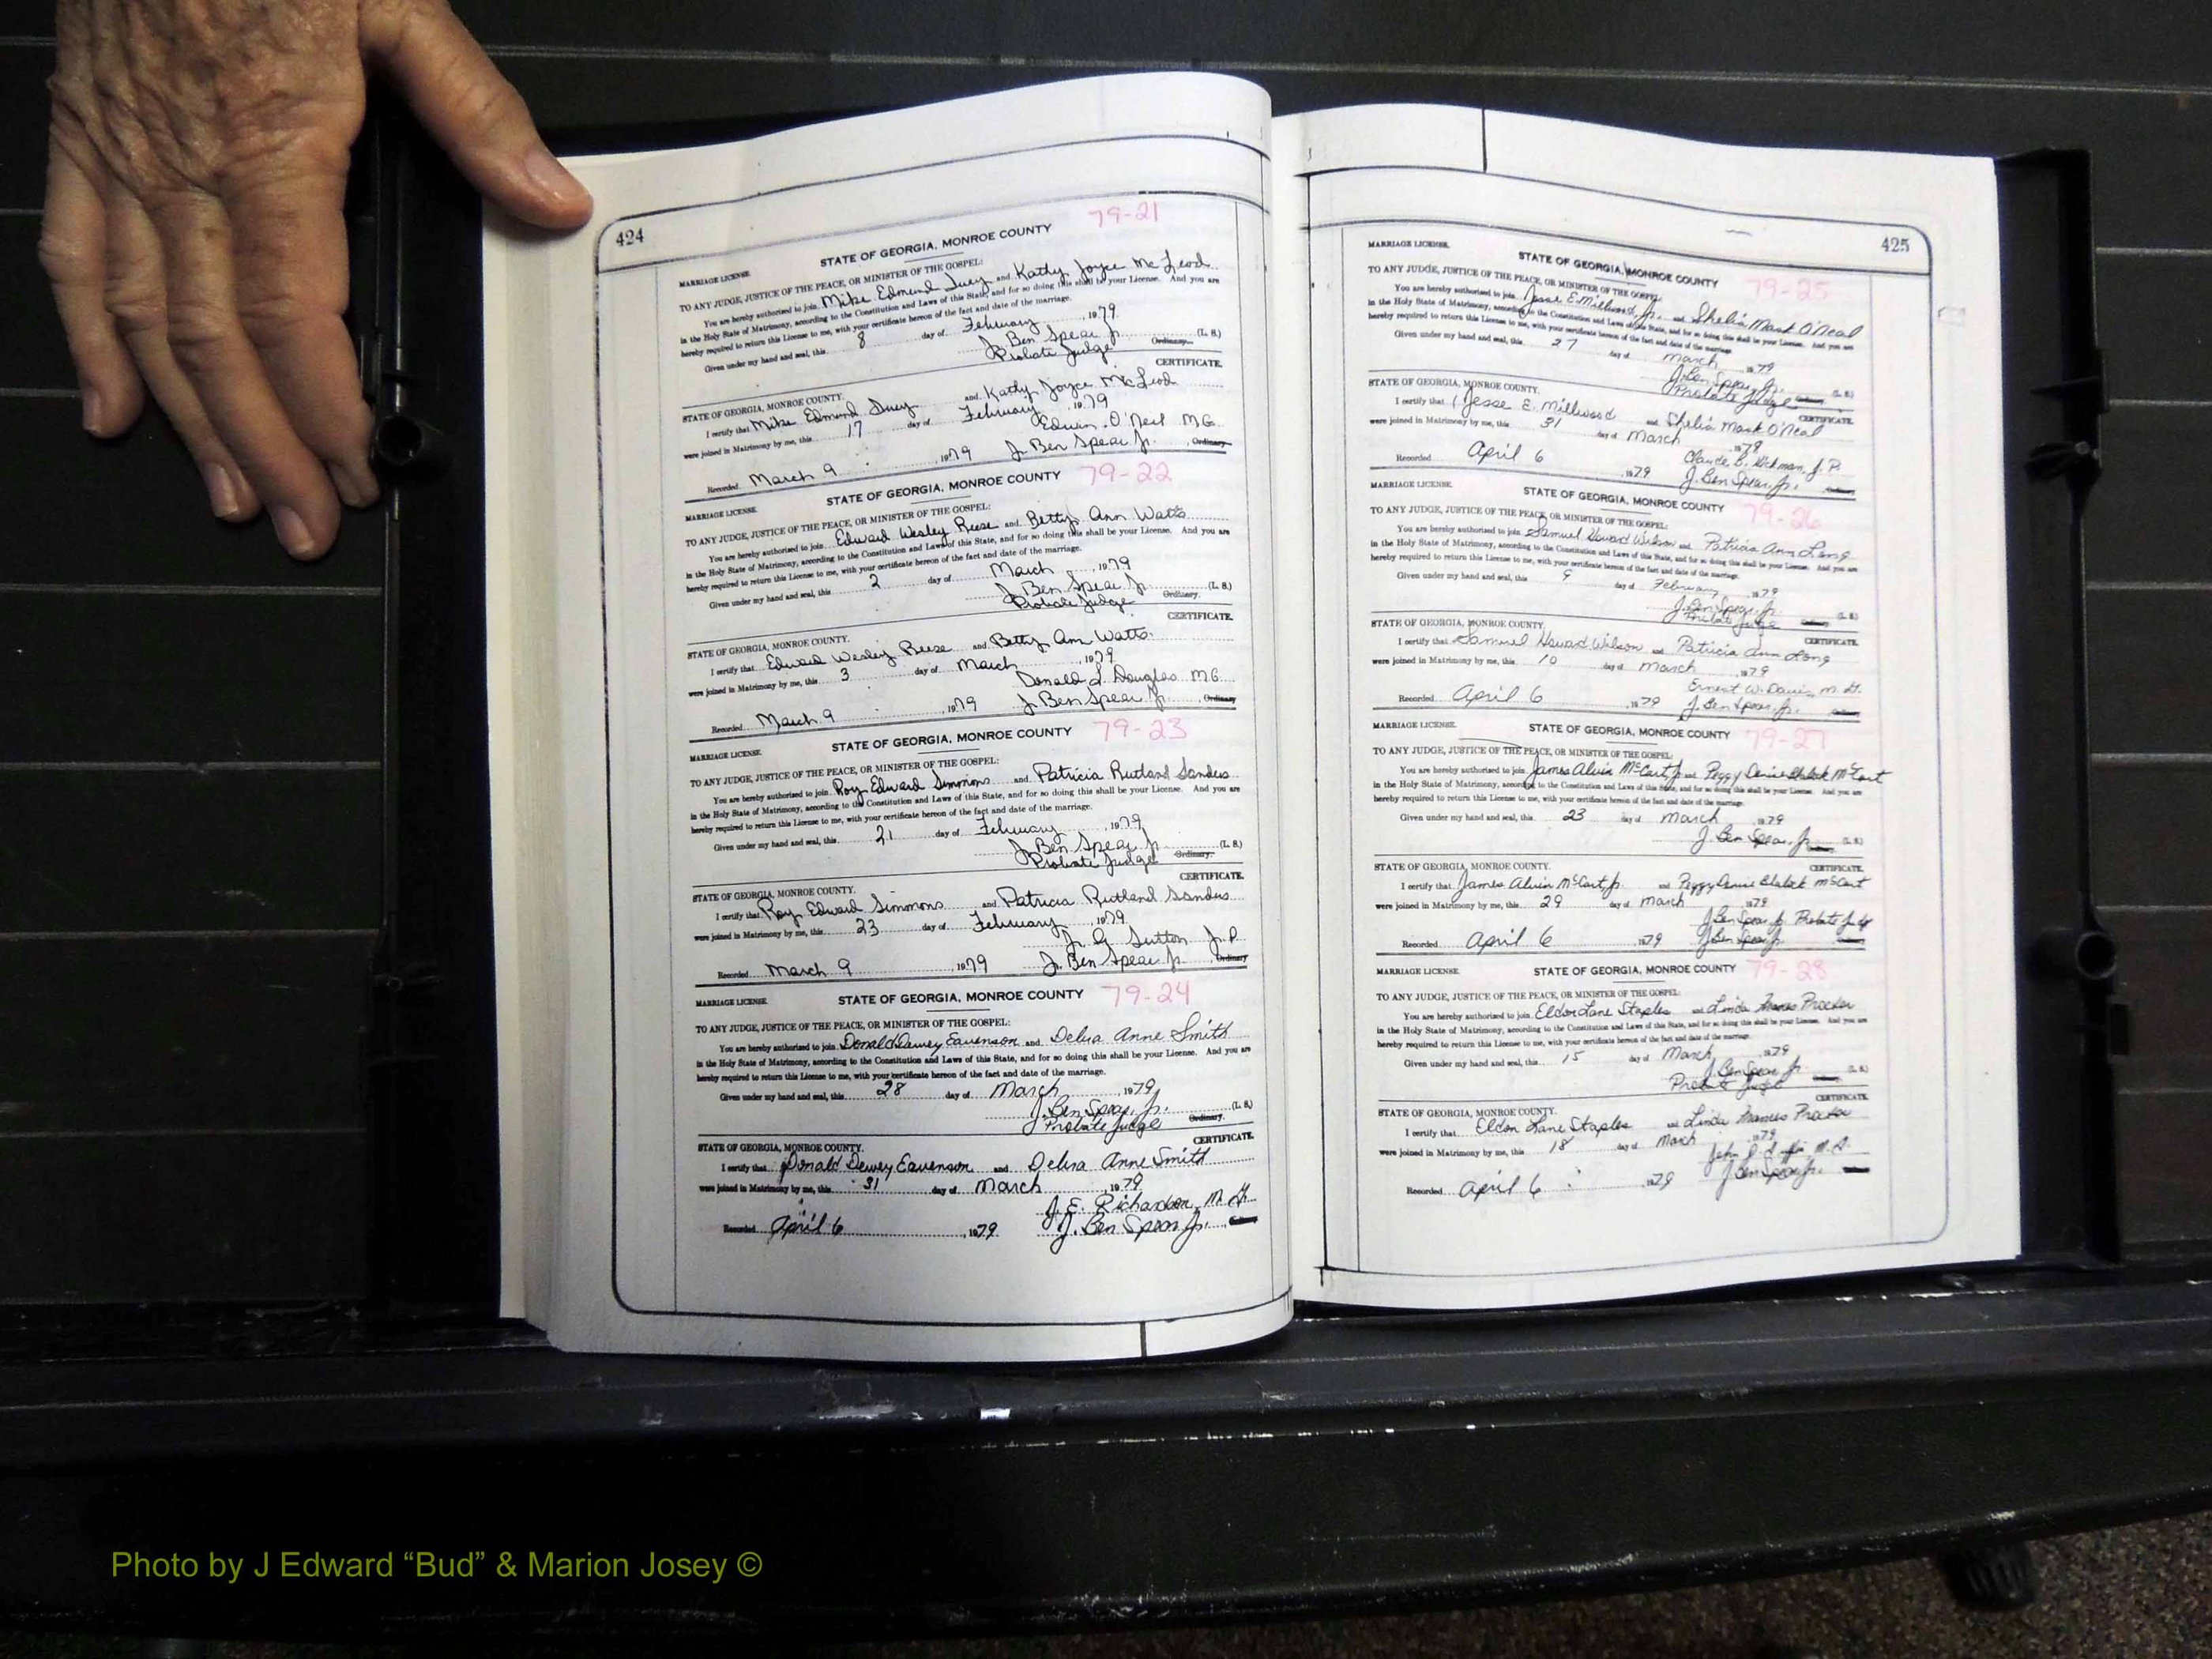 424
79-21
STATE OF GEORGIA, MONROE COUNTY
MARRIAGE LICENSE.
TO ANY JUDGE, JUSTICE OF THE PEACE, OR MINISTER OF THE GOSPEL:
You are hereby authorized to join Mike Edmund and Kathy Joyce McLeod
in the Holy State of Matrimony, according to the Constitution and Laws of this State, and for so doing this shall be your License. And you are
hereby required to return this License to me, with your certificate hereon of the fact and date of the marriage.
Given under my hand and seal, this 8 day of February, 1979
J. Ben Spear Jr. (L. S.)
Probate Judge Ordinary.
CERTIFICATE.
STATE OF GEORGIA, MONROE COUNTY.
I certify that Mike Edmund and Kathy Joyce McLeod
were joined in Matrimony by me, this 17 day of February, 1979
Edwin O'Neil M.G.
Recorded March 9, 1979 J. Ben Spear Jr., Ordinary
79-22
STATE OF GEORGIA, MONROE COUNTY
MARRIAGE LICENSE.
TO ANY JUDGE, JUSTICE OF THE PEACE, OR MINISTER OF THE GOSPEL:
You are hereby authorized to join Edward Wesley Reese and Betty Ann Watts
in the Holy State of Matrimony, according to the Constitution and Laws of this State, and for so doing this shall be your License. And you are
hereby required to return this License to me, with your certificate hereon of the fact and date of the marriage.
Given under my hand and seal, this 2 day of March, 1979
J. Ben Spear Jr. (L. S.)
Probate Judge Ordinary.
CERTIFICATE.
STATE OF GEORGIA, MONROE COUNTY.
I certify that Edward Wesley Reese and Betty Ann Watts
were joined in Matrimony by me, this 3 day of March, 1979
Donald L. Douglas M.G.
Recorded March 9, 1979 J. Ben Spear Jr., Ordinary
79-23
STATE OF GEORGIA, MONROE COUNTY
MARRIAGE LICENSE.
TO ANY JUDGE, JUSTICE OF THE PEACE, OR MINISTER OF THE GOSPEL:
You are hereby authorized to join Roy Edward Simmons and Patricia Rutland Sanders
in the Holy State of Matrimony, according to the Constitution and Laws of this State, and for so doing this shall be your License. And you are
hereby required to return this License to me, with your certificate hereon of the fact and date of the marriage.
Given under my hand and seal, this 21 day of February, 1979
J. Ben Spear Jr. (L. S.)
Probate Judge Ordinary.
CERTIFICATE.
STATE OF GEORGIA, MONROE COUNTY.
I certify that Roy Edward Simmons and Patricia Rutland Sanders
were joined in Matrimony by me, this 23 day of February, 1979
J. G. Sutton J.P.
Recorded March 9, 1979 J. Ben Spear Jr., Ordinary
79-24
MARRIAGE LICENSE. STATE OF GEORGIA, MONROE COUNTY
TO ANY JUDGE, JUSTICE OF THE PEACE, OR MINISTER OF THE GOSPEL:
You are hereby authorized to join Donald Dewey Eavenson and Debra Anne Smith
in the Holy State of Matrimony, according to the Constitution and Laws of this State, and for so doing this shall be your License. And you are
hereby required to return this License to me, with your certificate hereon of the fact and date of the marriage.
Given under my hand and seal, this 28 day of March, 1979
J. Ben Spear, Jr. (L. S.)
Probate Judge Ordinary.
CERTIFICATE.
STATE OF GEORGIA, MONROE COUNTY.
I certify that Donald Dewey Eavenson and Debra Anne Smith
were joined in Matrimony by me, this 31 day of March, 1979
J. E. Richardson, M.G.
Recorded April 6, 1979 J. Ben Spear Jr., Ordinary
425
MARRIAGE LICENSE.
STATE OF GEORGIA, MONROE COUNTY
79-25
TO ANY JUDGE, JUSTICE OF THE PEACE, OR MINISTER OF THE GOSPEL:
You are hereby authorized to join Jesse E. Millwood, Jr. and Shelia Mask O'Neal
in the Holy State of Matrimony, according to the Constitution and Laws of this State, and for so doing this shall be your License. And you are
hereby required to return this License to me, with your certificate hereon of the fact and date of the marriage.
Given under my hand and seal, this 27 day of March, 1979
J. Ben Spear, Jr. (L. S.)
Probate Judge
CERTIFICATE.
STATE OF GEORGIA, MONROE COUNTY.
I certify that Jesse E. Millwood and Shelia Mask O'Neal
were joined in Matrimony by me, this 31 day of March, 1979
Claude B. J.P.
Recorded April 6, 1979 J. Ben Spear, Jr.
MARRIAGE LICENSE.
STATE OF GEORGIA, MONROE COUNTY
79-26
TO ANY JUDGE, JUSTICE OF THE PEACE, OR MINISTER OF THE GOSPEL:
You are hereby authorized to join Samuel Howard Wilson and Patricia Ann Long
in the Holy State of Matrimony, according to the Constitution and Laws of this State, and for so doing this shall be your License. And you are
hereby required to return this License to me, with your certificate hereon of the fact and date of the marriage.
Given under my hand and seal, this 9 day of February, 1979
J. Ben Spear, Jr. (L. S.)
Probate Judge
CERTIFICATE.
STATE OF GEORGIA, MONROE COUNTY.
I certify that Samuel Howard Wilson and Patricia Ann Long
were joined in Matrimony by me, this 10 day of March, 1979
Ernest W. Davis, M.G.
Recorded April 6, 1979 J. Ben Spear, Jr.
MARRIAGE LICENSE.
STATE OF GEORGIA, MONROE COUNTY
79-27
TO ANY JUDGE, JUSTICE OF THE PEACE, OR MINISTER OF THE GOSPEL:
You are hereby authorized to join James Alvin McCart, Jr. and Peggy Denise Blalock McCart
in the Holy State of Matrimony, according to the Constitution and Laws of this State, and for so doing this shall be your License. And you are
hereby required to return this License to me, with your certificate hereon of the fact and date of the marriage.
Given under my hand and seal, this 23 day of March, 1979
J. Ben Spear, Jr. (L. S.)
CERTIFICATE.
STATE OF GEORGIA, MONROE COUNTY.
I certify that James Alvin McCart, Jr. and Peggy Denise Blalock McCart
were joined in Matrimony by me, this 29 day of March, 1979
J. Ben Spear Jr. Probate
Recorded April 6, 1979 J. Ben Spear Jr.
MARRIAGE LICENSE. STATE OF GEORGIA, MONROE COUNTY 79-28
TO ANY JUDGE, JUSTICE OF THE PEACE, OR MINISTER OF THE GOSPEL:
You are hereby authorized to join Eldon Lane Staples and Linda Frances Proctor
in the Holy State of Matrimony, according to the Constitution and Laws of this State, and for so doing this shall be your License. And you are
hereby required to return this License to me, with your certificate hereon of the fact and date of the marriage.
Given under my hand and seal, this 15 day of March, 1979
J. Ben Spear Jr. (L. S.)
Probate Judge
CERTIFICATE.
STATE OF GEORGIA, MONROE COUNTY.
I certify that Eldon Lane Staples and Linda Frances Proctor
were joined in Matrimony by me, this 18 day of March, 1979
John M.G.
Recorded April 6, 1979 J. Ben Spear Jr.
Photo by J Edward “Bud” & Marion Josey ©